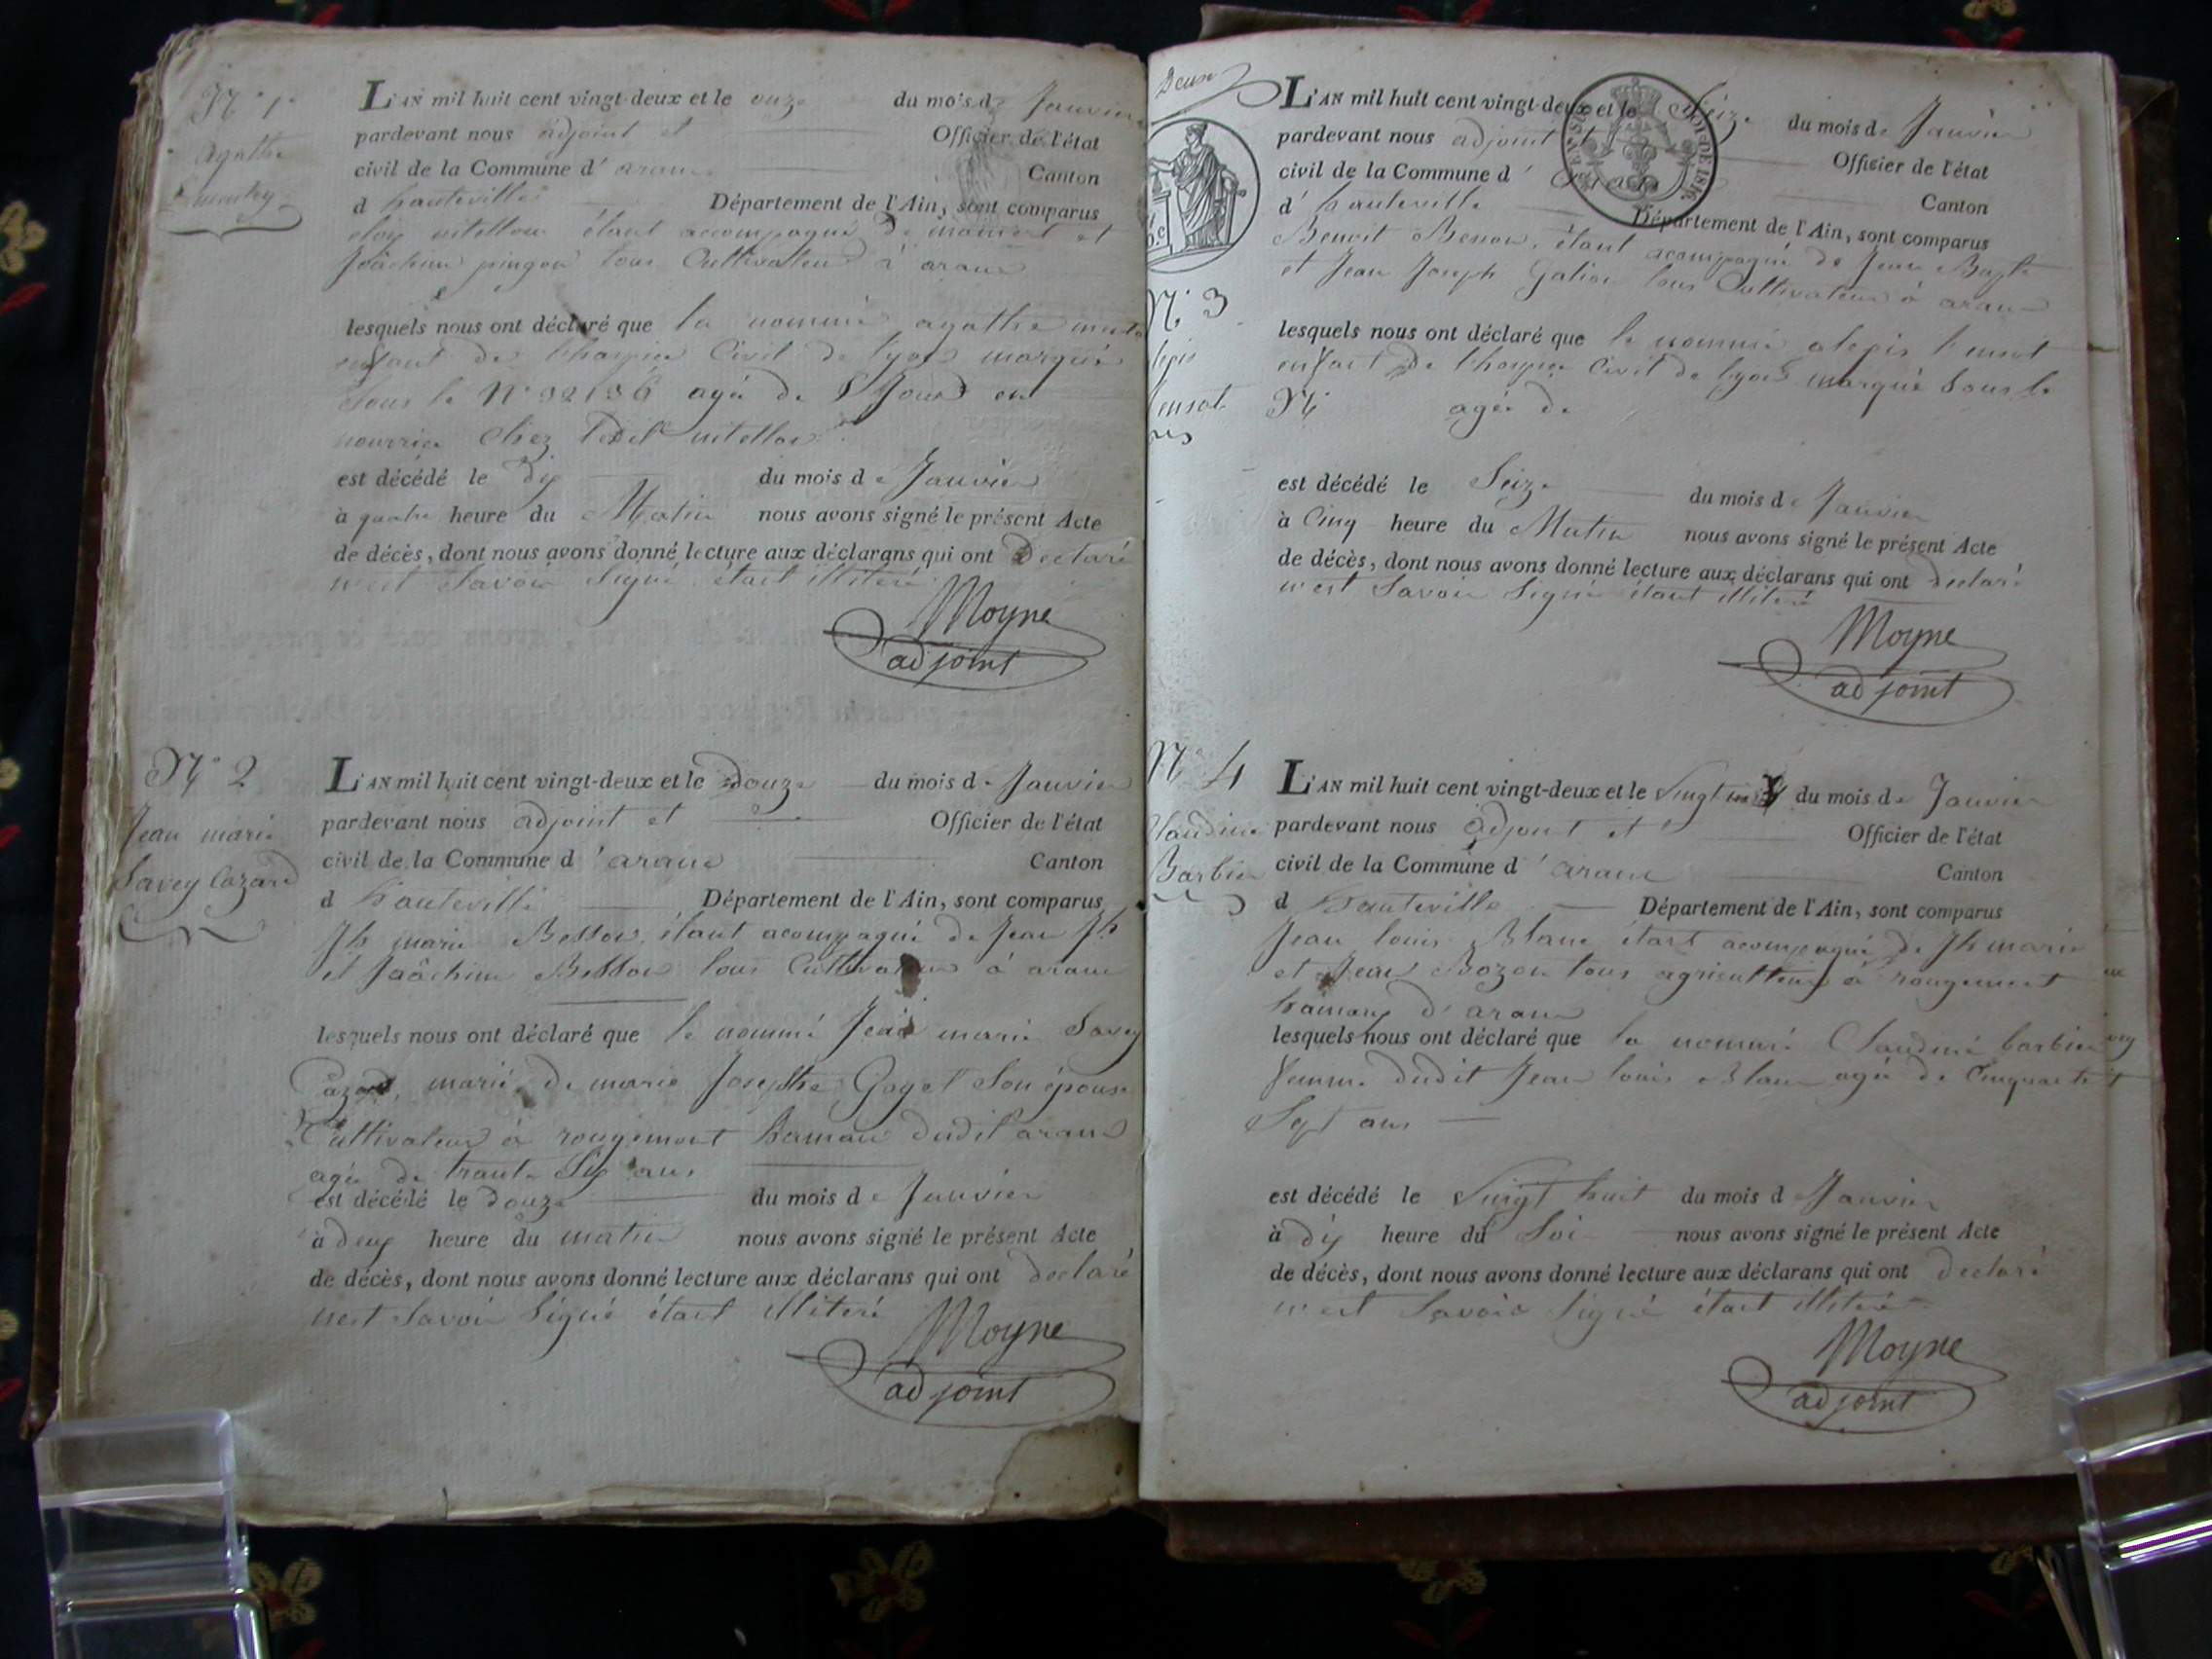 N° 1
Agathe
L'AN mil huit cent vingt-deux et le onze du mois de Janvier
pardevant nous adjoint et Officier de l'état
civil de la Commune d' aranc Canton
d hauteville Département de l'Ain, sont comparus
étant accompagné de et
Joachim pingon tous Cultivateur à aranc
lesquels nous ont déclaré que la nommé agathe
enfant de l'hospice Civil de lyon marqué
Sous le N° agé de Jours en
nourrice Chez
est décédé le dix du mois de Janvier
à quatre heure du Matin nous avons signé le présent Acte
de décès, dont nous avons donné lecture aux déclarans qui ont Declaré
Savoir Signé étant illiteré
Moyne
adjoint
N° 2
Jean marie
Savey Cazard
L'AN mil huit cent vingt-deux et le Douze du mois de Janvier
pardevant nous adjoint et Officier de l'état
civil de la Commune d 'aranc Canton
d hauteville Département de l'Ain, sont comparus
Jh marie Besson, étant acompagné de Jean Jh
et Joâchim Besson tous Cultivateur à aranc
lesquels nous ont déclaré que le nommé Jean marie Savey
Cazard, marié de marie Josephte Goget Son épouse
Cultivateur à rougemont hamau dudit aranc
agé de trante Six ans
est décédé le douze du mois de Janvier
à deux heure du matin nous avons signé le présent Acte
de décès, dont nous avons donné lecture aux déclarans qui ont declaré
Savoir Signé étant illiteré
Moyne
adjoint
Deux
N° 3
L'AN mil huit cent vingt-deux et le Seize du mois de Janvier
pardevant nous adjoint et Officier de l'état
civil de la Commune d' Canton
d' hauteville Département de l'Ain, sont comparus
Benoit Besson, étant acompagné de Jean Bapte
et Jean Joseph Galion tous Cultivateur à aranc
lesquels nous ont déclaré que le nommé alexis
enfant de l'hospice Civil de lyon marqué Sous le
N° agée de
est décédé le Seize du mois de Janvier
à Cinq heure du Matin nous avons signé le présent Acte
de décès, dont nous avons donné lecture aux déclarans qui ont declaré
Savoir Signé étant illiteré
Moyne
adjoint
N° 4
Claudine
Barbier
L'AN mil huit cent vingt-deux et le du mois de Janvier
pardevant nous adjoint et Officier de l'état
civil de la Commune d 'aranc Canton
d hauteville Département de l'Ain, sont comparus
Jean louis Blanc étant acompagné de Jh marie
et Jean Bozon tous agriculteur à rougemont
hamaux d'aranc
lesquels nous ont déclaré que la nommé Claudine barbier
femme dudit Jean louis Blanc agé de Cinquante
Sept ans
est décédé le Vingt huit du mois d Janvier
à dix heure du Soir nous avons signé le présent Acte
de décès, dont nous avons donné lecture aux déclarans qui ont declaré
Savoir Signé étant illiteré
Moyne
adjoint